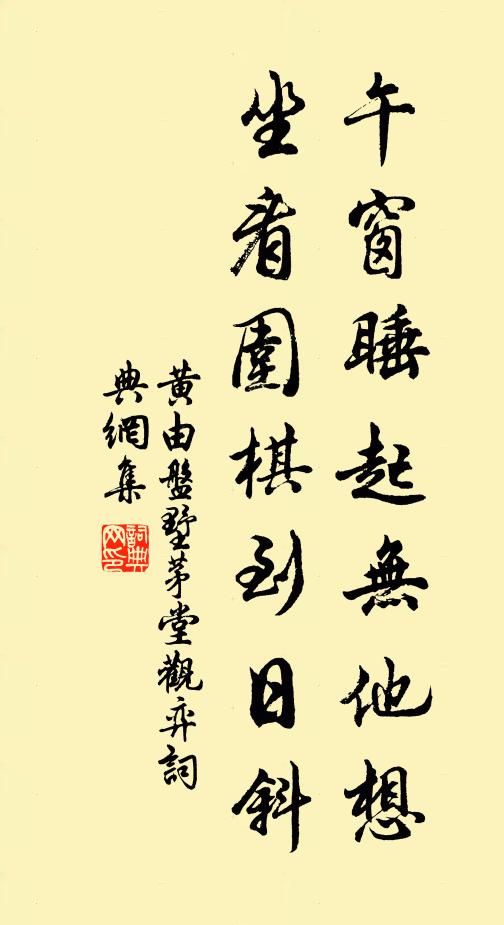 午窗睡起無他想
坐看圍棋到日斜
黃由盤墅茅堂觀弈詞
典網集
詞典網印